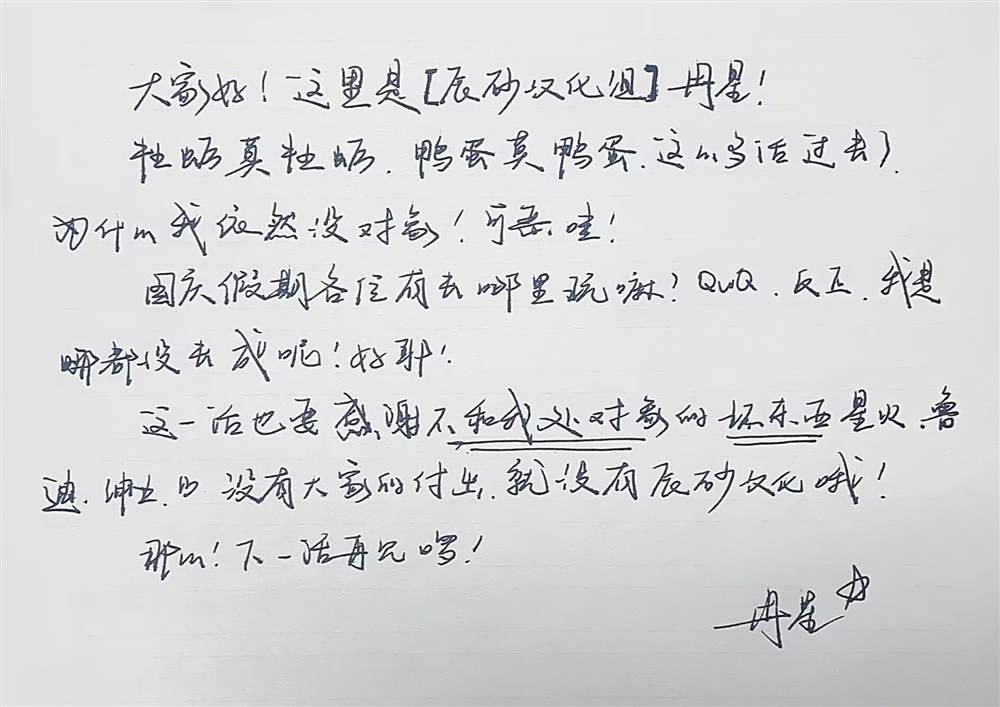 大家好！这里是[辰砂汉化组]冉星！
牡蛎真牡蛎，鸭蛋真鸭蛋，这么多话过去了，
为什么我依然没对象！可恶哇！
国庆假期各位有去哪里玩嘛？QuQ，反正，我是
哪都没去成呢！好耶！
这一话也要感谢不和我处对象的坏东西星火、鲁
迪、绅士、B 没有大家的付出，就没有辰砂汉化哦！
那么！下一话再见啰！
冉星